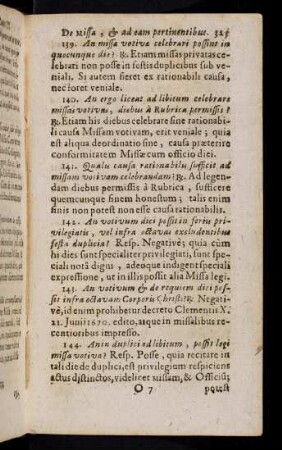 De Missa, & ad eam pertinentibus. 325
139. An missa votiva celebrari possint in
quocunque die? ℞. Etiam missas privatas ce-
lebrari non posse in festis duplicibus sub ve-
niali. Si autem fieret ex rationabili causa,
nec foret veniale.
140. An ergo liceat ad libitum celebrare
missas votivas, diebus à Rubrica permissis?
℞. Etiam his diebus celebrare sine rationabi-
li causa Missam votivam, erit veniale; quia
est aliqua deordinatio sine, causa præterire
conformitatem Missæ cum officio diei.
141. Qualis causa rationabilis sufficit ad
missam votivam celebrandam? ℞. Ad legen-
dam diebus permissis à Rubrica, sufficere
quemcunque finem honestum; talis enim
finis non potest non esse causa rationabilis.
142. An votivum dici possit in feriis pri-
vilegiatis, vel infra octavas excludentibus
festa duplicia? Resp. Negativè; quia cùm
hi dies sunt specialiter privilegiati, sunt spe-
ciali nota digni, adeoque indigent speciali
expressione, ut in illis possit alia Missa legi.
143. An votivum & de requiem dici pos-
sit infra octavam Corporis Christi? ℞. Negati-
vè, id enim prohibetur decreto Clementis X.
21. Junii 1670. edito, itaque in missalibus re-
centioribus impresso.
144. An in duplici ad libitum, possit legi
missa votiva? Resp. Posse, quia recitare in
tali die de duplici, est privilegium respiciens
actus distinctos, videlicet missam, & Officiũ;
O 7 potest